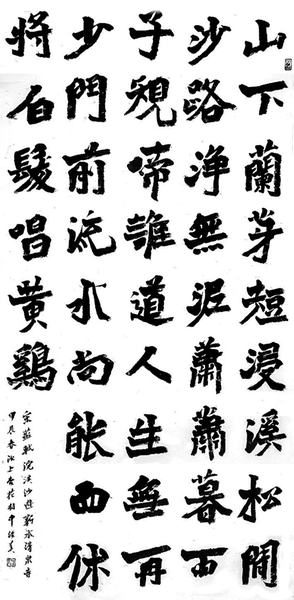 山下蘭芽短浸溪松間
沙路淨無泥蕭蕭暮雨
子規啼誰道人生無再
少門前流水尚能西休
將白髮唱黄鷄
宋蘇軾浣溪沙遊蘄水清泉寺
甲辰春